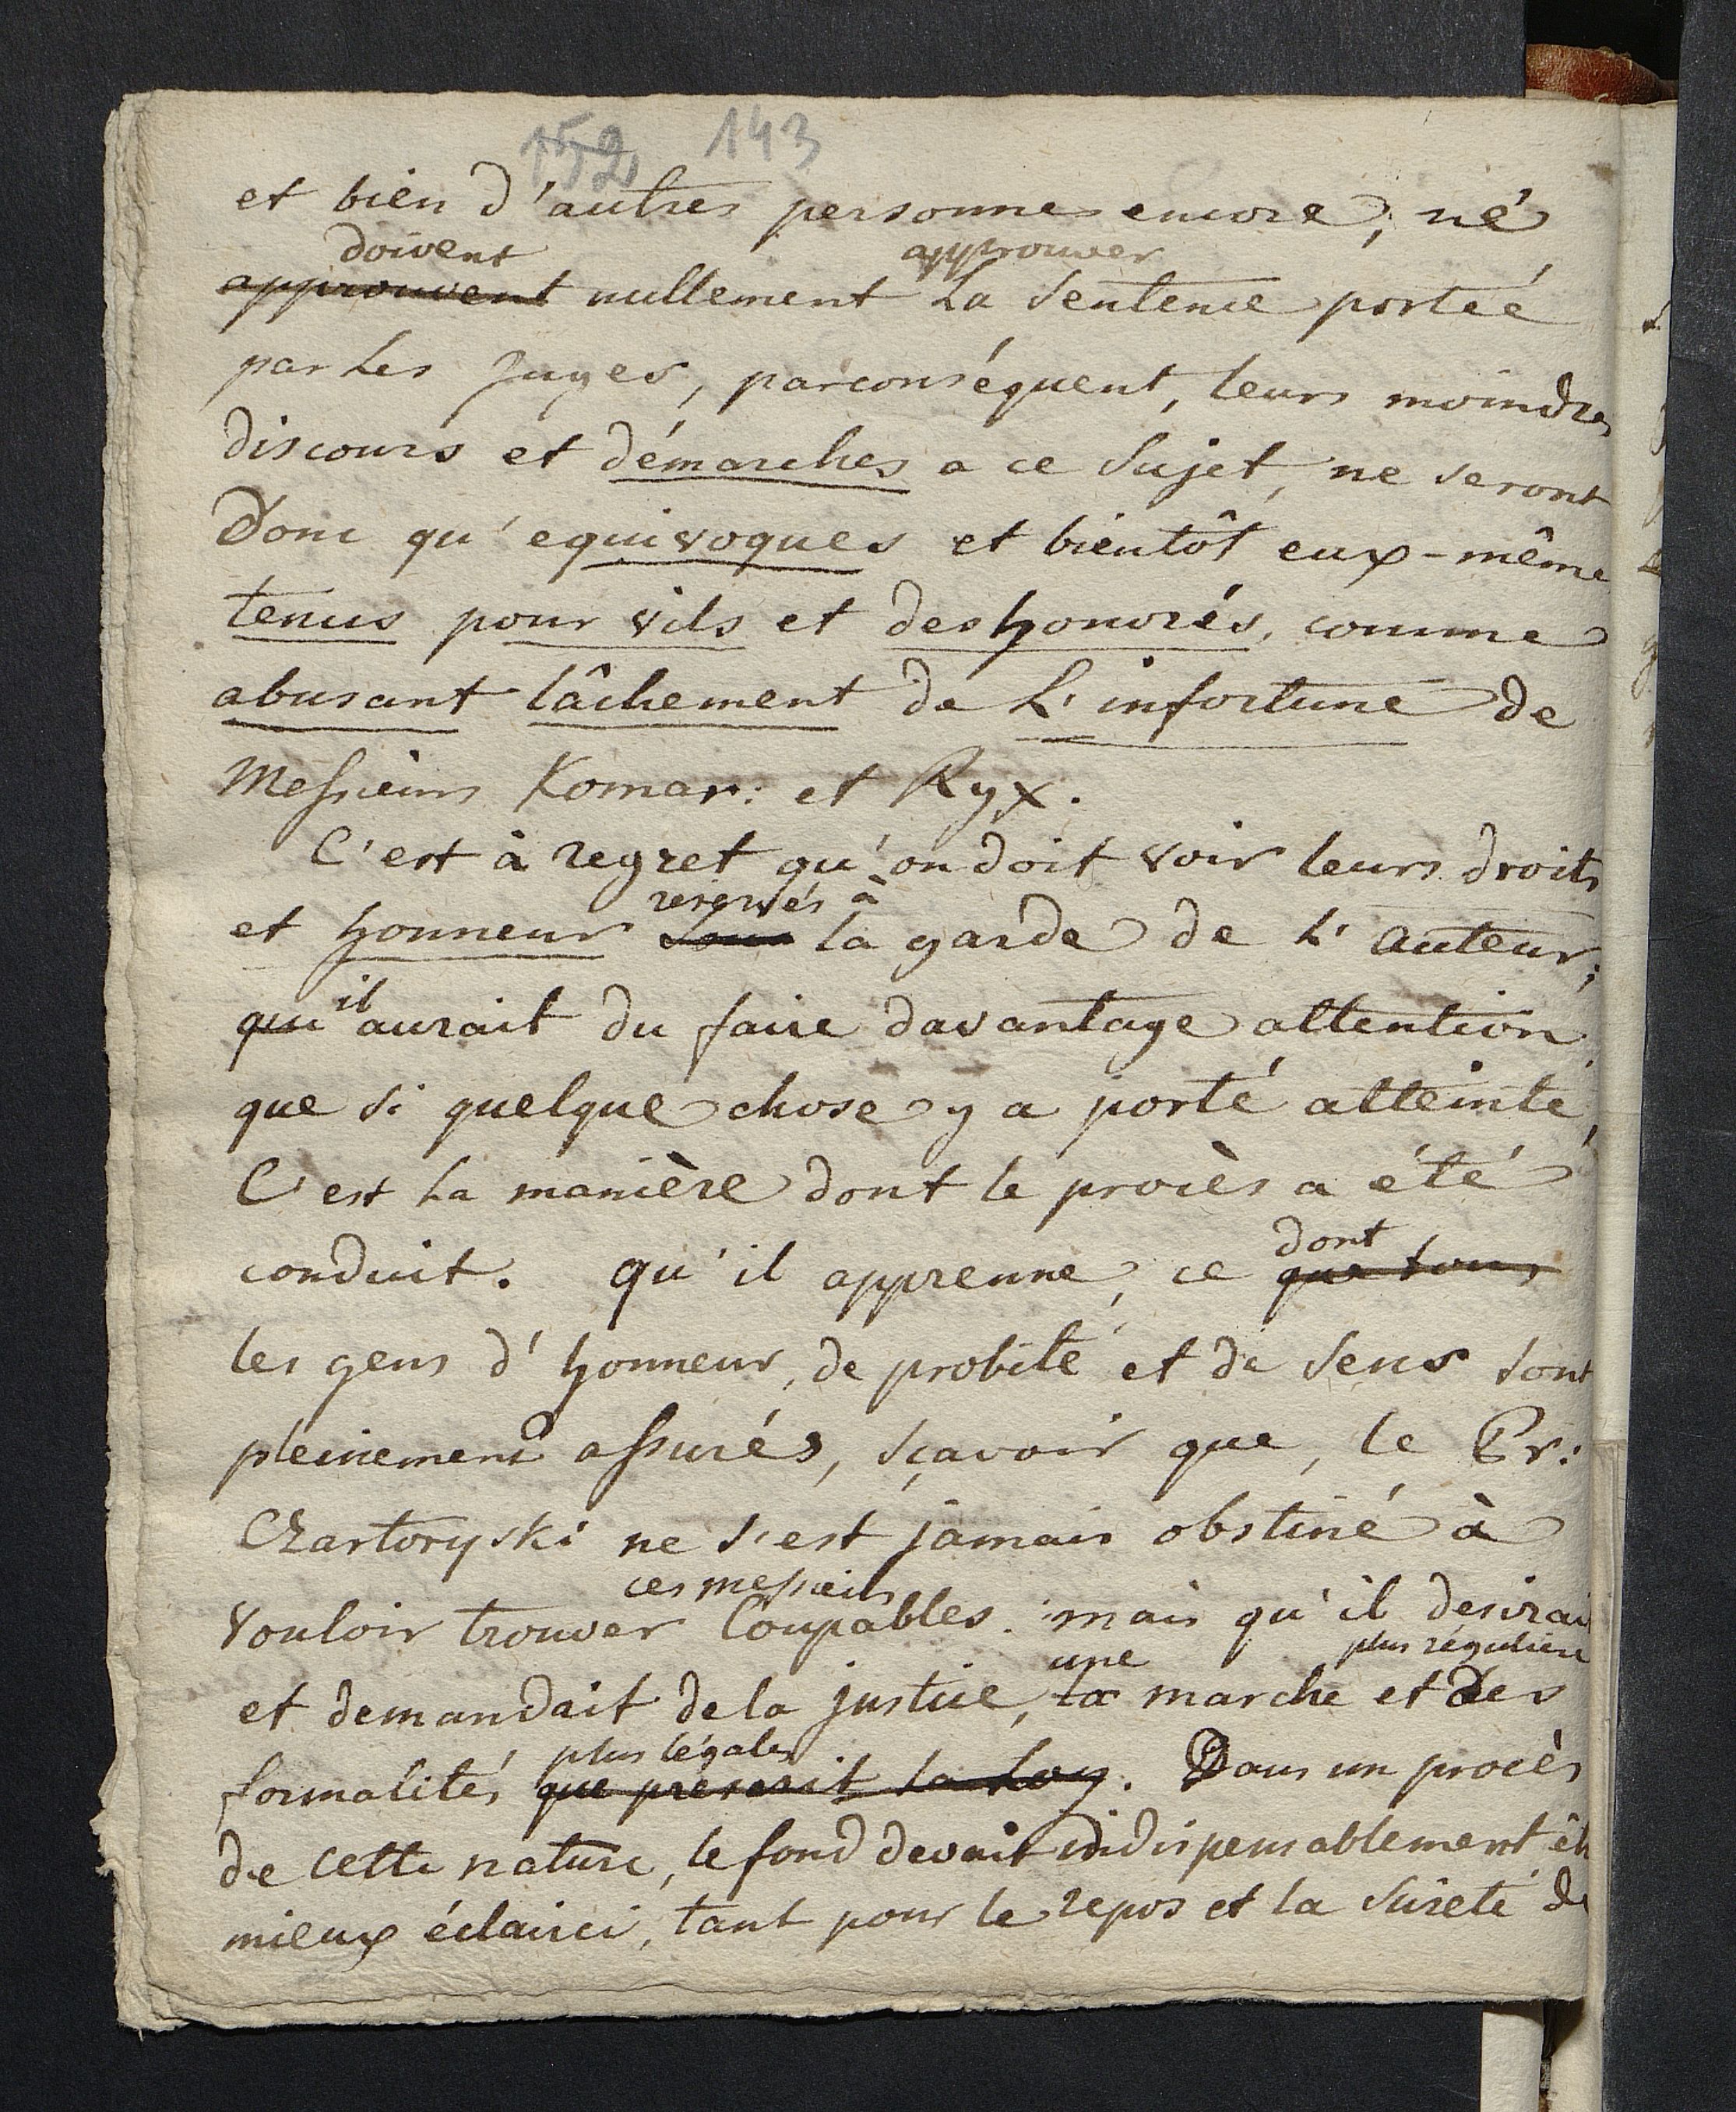 152 143
et bien d'autres personnes encore, né
doivent approuver
approuvent nullement La Sentence porteé
par Les Juges, parconséquent, leurs moindres
discours et démarches a ce Sujet, ne seront
Donc qu'equivoques et bientôt eux-même
tenus pour vils et deshonorés, comme
abusant lâchement de L'infortune de
Messieurs Komar: et Ryx.
C'est à regret qu'on doit voir leurs droits
reservés à
et honneur sous la garde de L'auteur;
il
qui aurait du faire davantage attention
que si quelque chose y a porté atteinte,
C'est La manière dont le procès a été
dont
conduit. qu'il apprenne, ce que tous
les gens d'honneur, de probité et de sens sont
pleinement assurés, sçavoir que, le Pr:
Czartoryski ne s'est jamais obstiné à
ces messieurs
vouloir trouver Coupables. mais qu'il desirait
une plus régulière
et demandait de la justice, la marche et des
plus légales
formalités que préscrit la Loy. Dans un procès
de cette nature, le fond devait indispensablement êt
mieux éclairci, tant pour le repos et la Sureté de